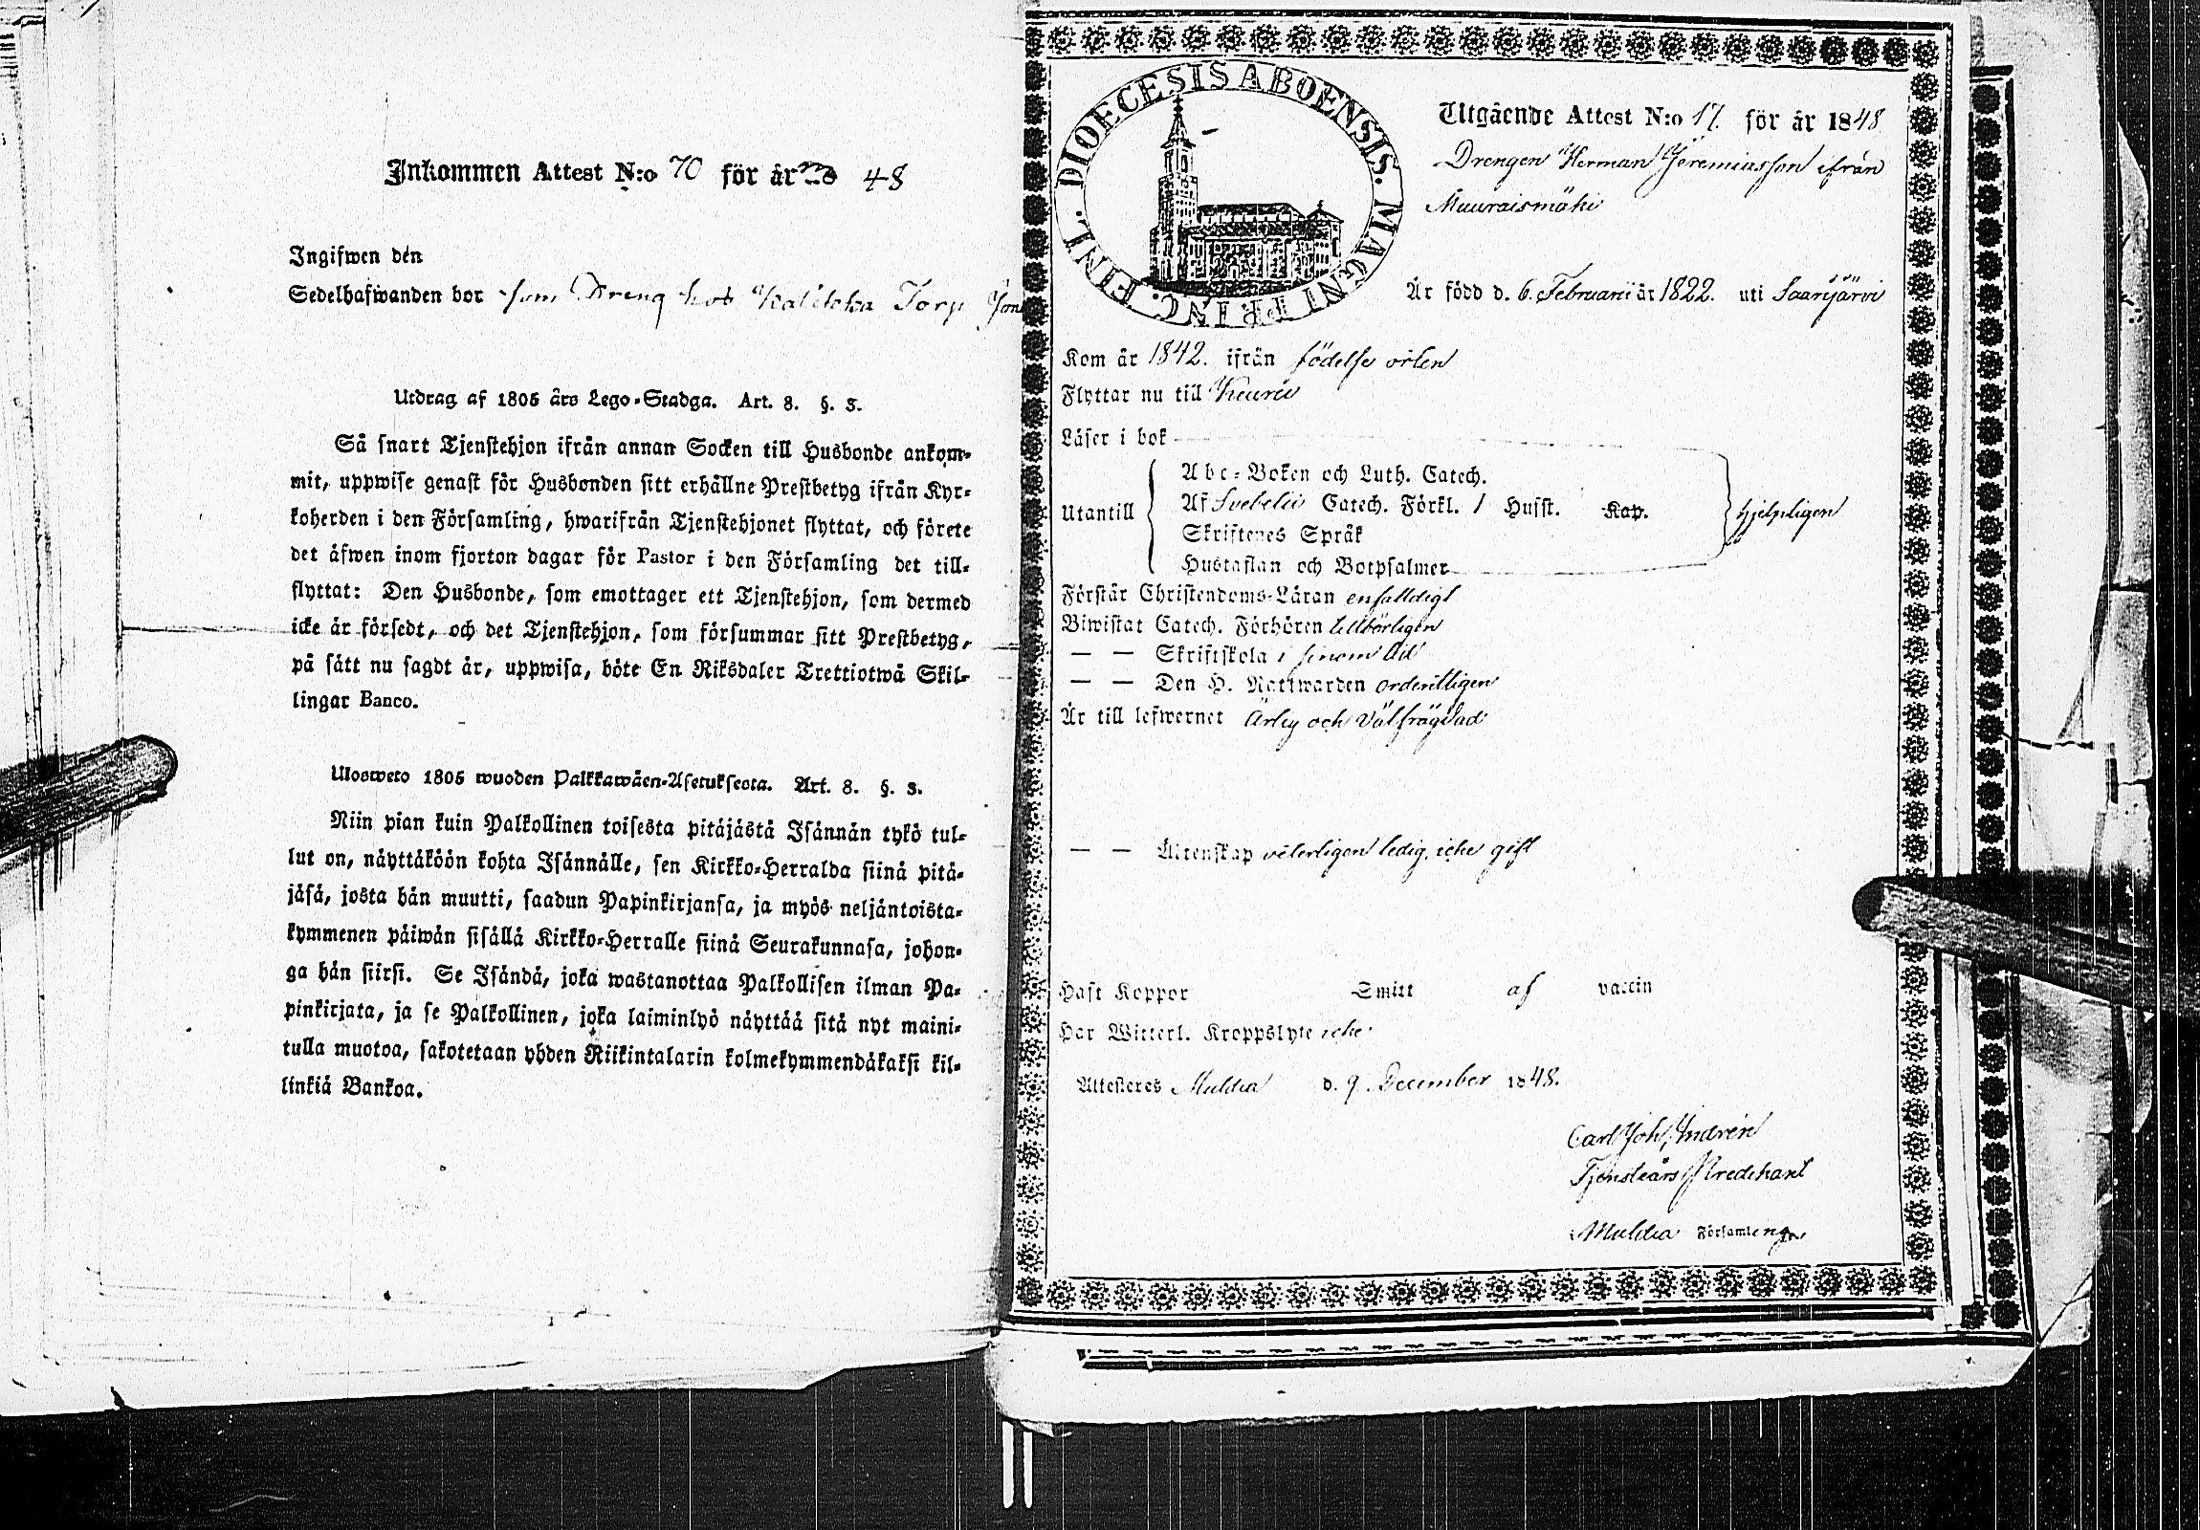 Inkommen Attest N:o 70 för år 48
Ingifwen den
Sedelhafwanden bor som Dreng hos Kalikka Torp
Utdrag af 1805 års Lego-Stadga. Art. 8. §. 3.
Så snart Tjenstehjon ifrån annan Socken till Husbonde ankom-
mit, uppwise genast för Husbonden sitt erhållne Prestbetyg ifrån Kyr-
koherden i den Församling, hwarifrån Tjenstehjonet flyttat, och förete
det åfwen inom fjorton dagar för Pastor i den Församling det till-
flyttat: Den Husbonde, som emottager ett Tjenstehjon, som dermed
icke är försedt, och det Tjenstehjon, som försummar sitt Prestbetyg,
på sätt nu sagdt är, uppwisa, böte En Riksdaler Trettiotwå Skil-
lingar Banco.
Ulosweto 1805 wuoden Palkkawäen-Asetuksesta. Art. 8. §. 3.
Niin pian kuin Palkollinen toisesta pitäjästä Isännän tykö tul-
lut on, näyttäköön kohta Isännälle, sen Kirkko-Herralda siinä pitä-
jäsä, josta hän muutti, saadun Papinkirjansa, ja myös neljäntoista-
kymmenen päiwän sisällä Kirkko-Herralle siinä Seurakunnasa, johon-
ga hän siirsi. Se Isändä, joka wastanottaa Palkollisen ilman Pa-
pinkirjata, ja se Palkollinen, joka laiminlyö näyttää sitä nyt maini-
tulla muotoa, sakotetaan yhden Riikintalarin kolmekymmendäkaksi kil-
linkiä Bankoa.
DIOECESIS ABOENSIS. MAGNI PRINC. FINL.
Utgående Attest N:o 17. för år 1848
Drengen Herman Jeremiasson ifrån
Muuraismäki
Är född d. 6. Februarii år 1822. uti Saarijärvi
Kom år 1842. ifrån födelse orten
Flyttar nu till Keuru
Läser i bok
Utantill
Abc-Boken och Luth. Catech.
Af Svebelii Catech. Förkl. / Husst. Kap.
Skriftenes Språk
Hustaflan och Botpsalmer
hjelpligen
Förstår Christendoms-Läran enfaldigt
Biwistat Catech. Förhören tillbörligen
— — Skriftskola i sinom tid
— — Den H. Nattwarden ordentligen
Är till lefwernet ärlig och välfrägdad
— — Äktenskap veterligen ledig, icke gift
Haft Koppor Smitt af vaccin
Har Witterl. Kroppslyte icke
Attesteras Multia d. 9. December 1848.
Carl Joh. Indrén
Tjensteårs Predikant
Multia Församling